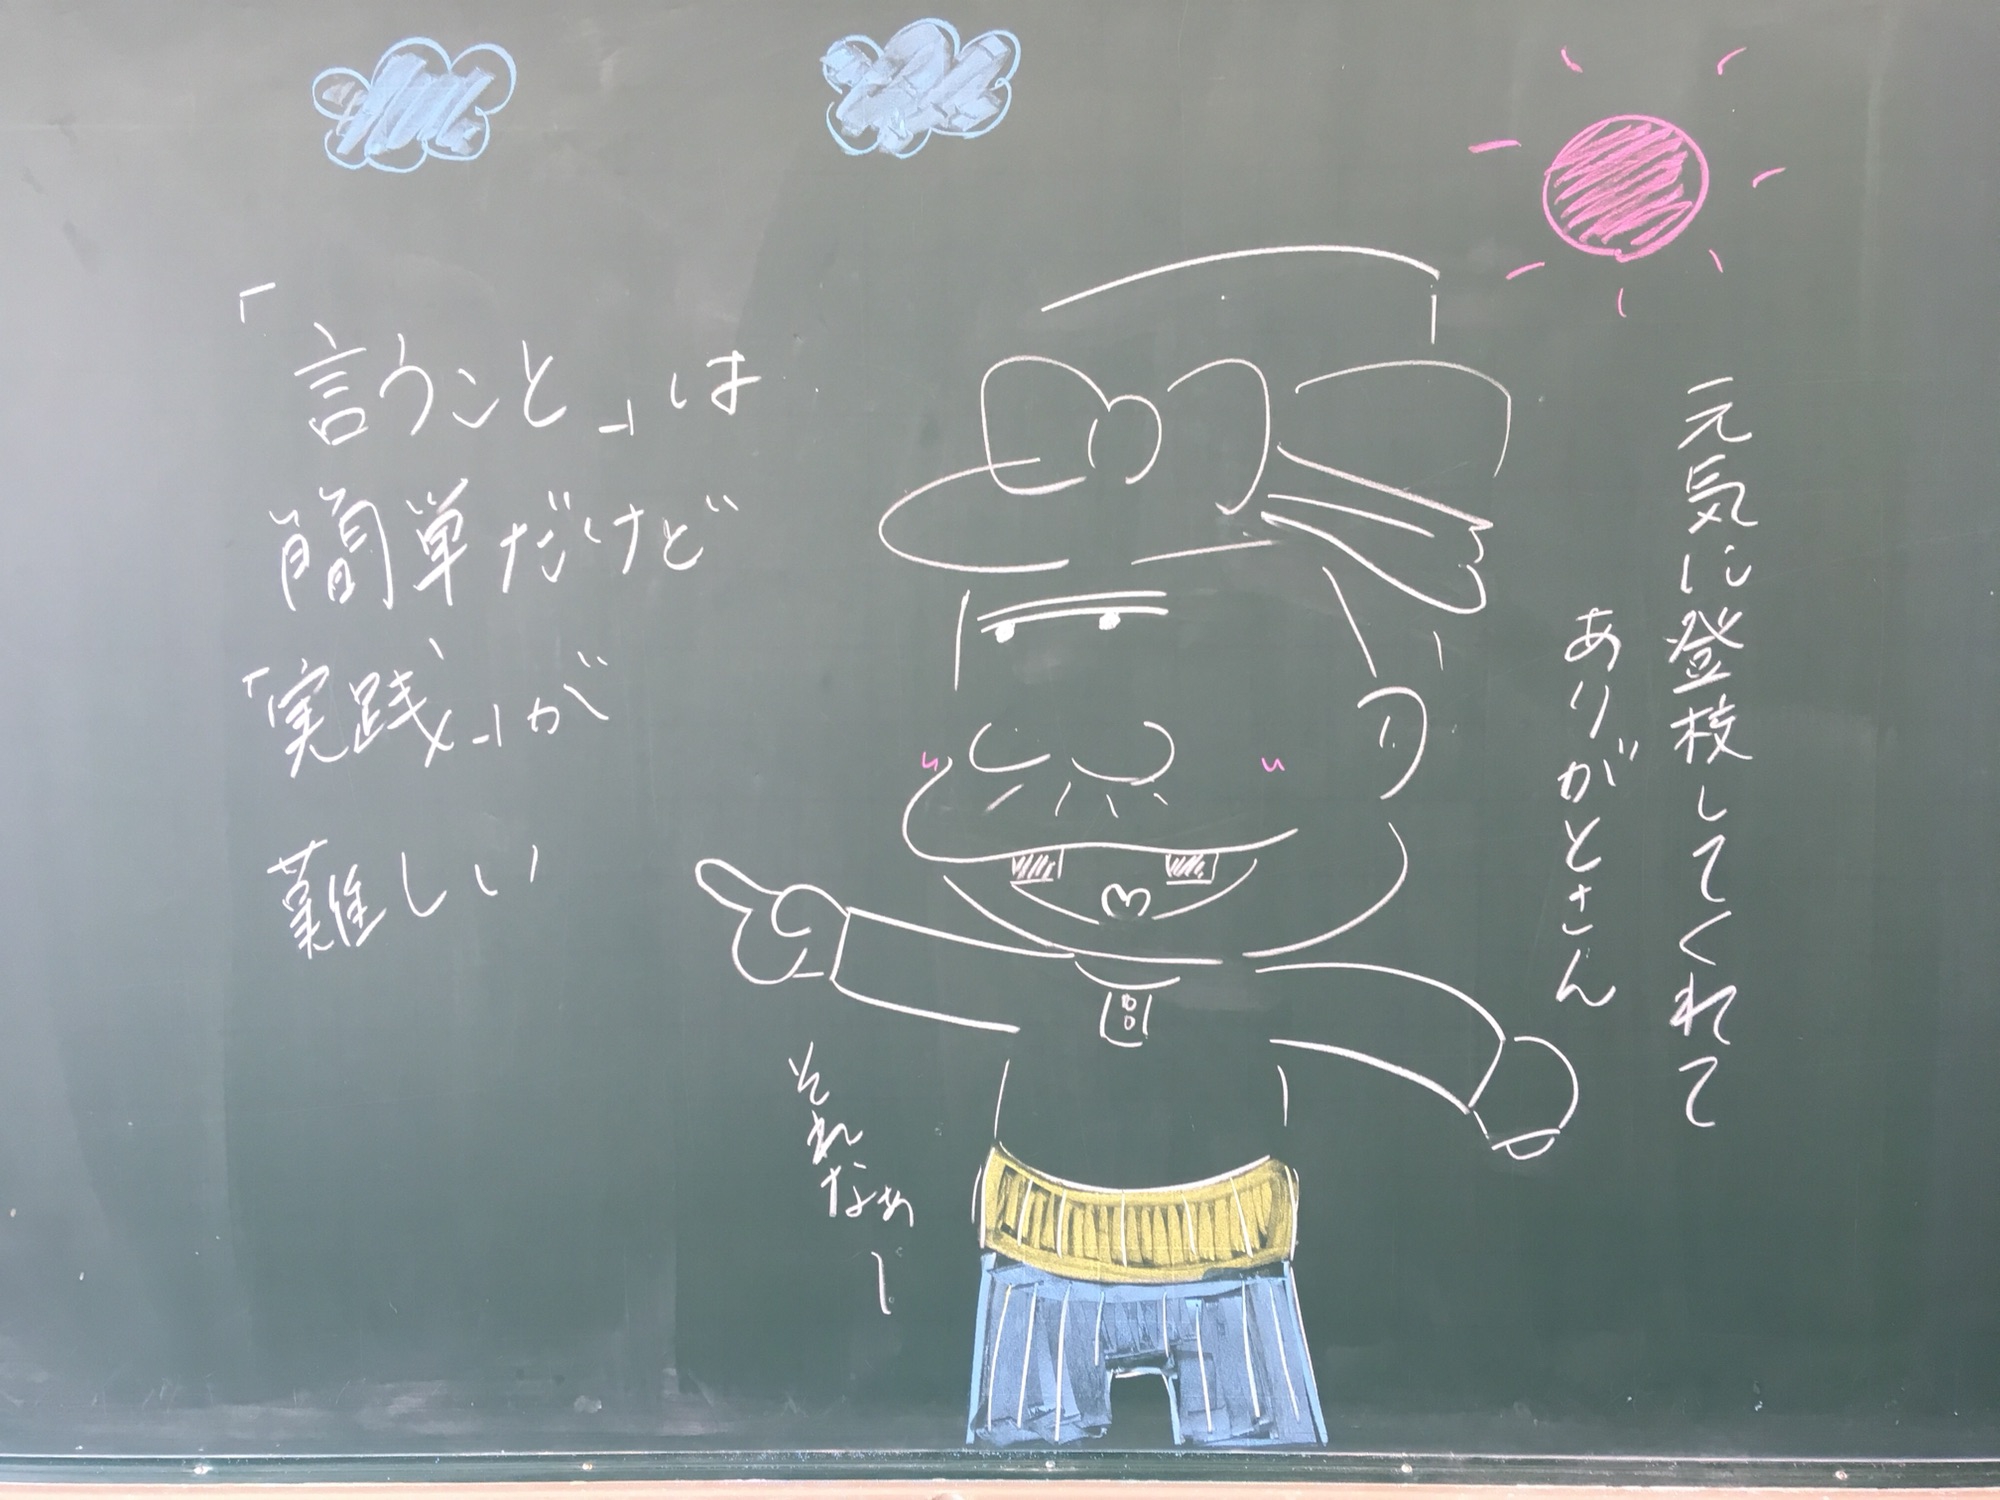 「言うこと」は
簡単だけど
「実践」が
難しい
元気に登校してくれて
ありがとさん
それなぁ